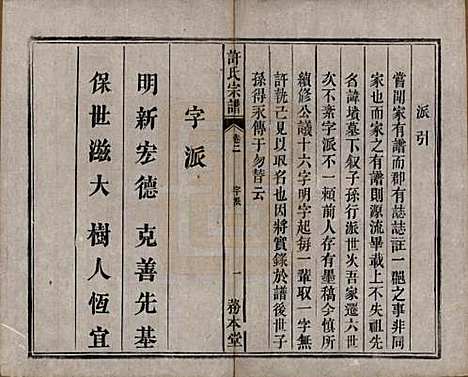 派引
嘗聞家有譜而郡有誌誌証一郡之事非同
家也而家之有譜則源流畢載上不失祖先
名諱墳墓下叙子孫行派世次吾家遷六世
次不紊字派不一賴前人存有墨稿今慎所
續修公議十六字明字起每一輩取一字無
許執己見以取名也因將實錄於譜後世子
孫得永傳于勿替云
許氏宗譜
卷二
字派
一
務本堂
字派
明新宏德 克善先基
保世滋大 樹人恆宜